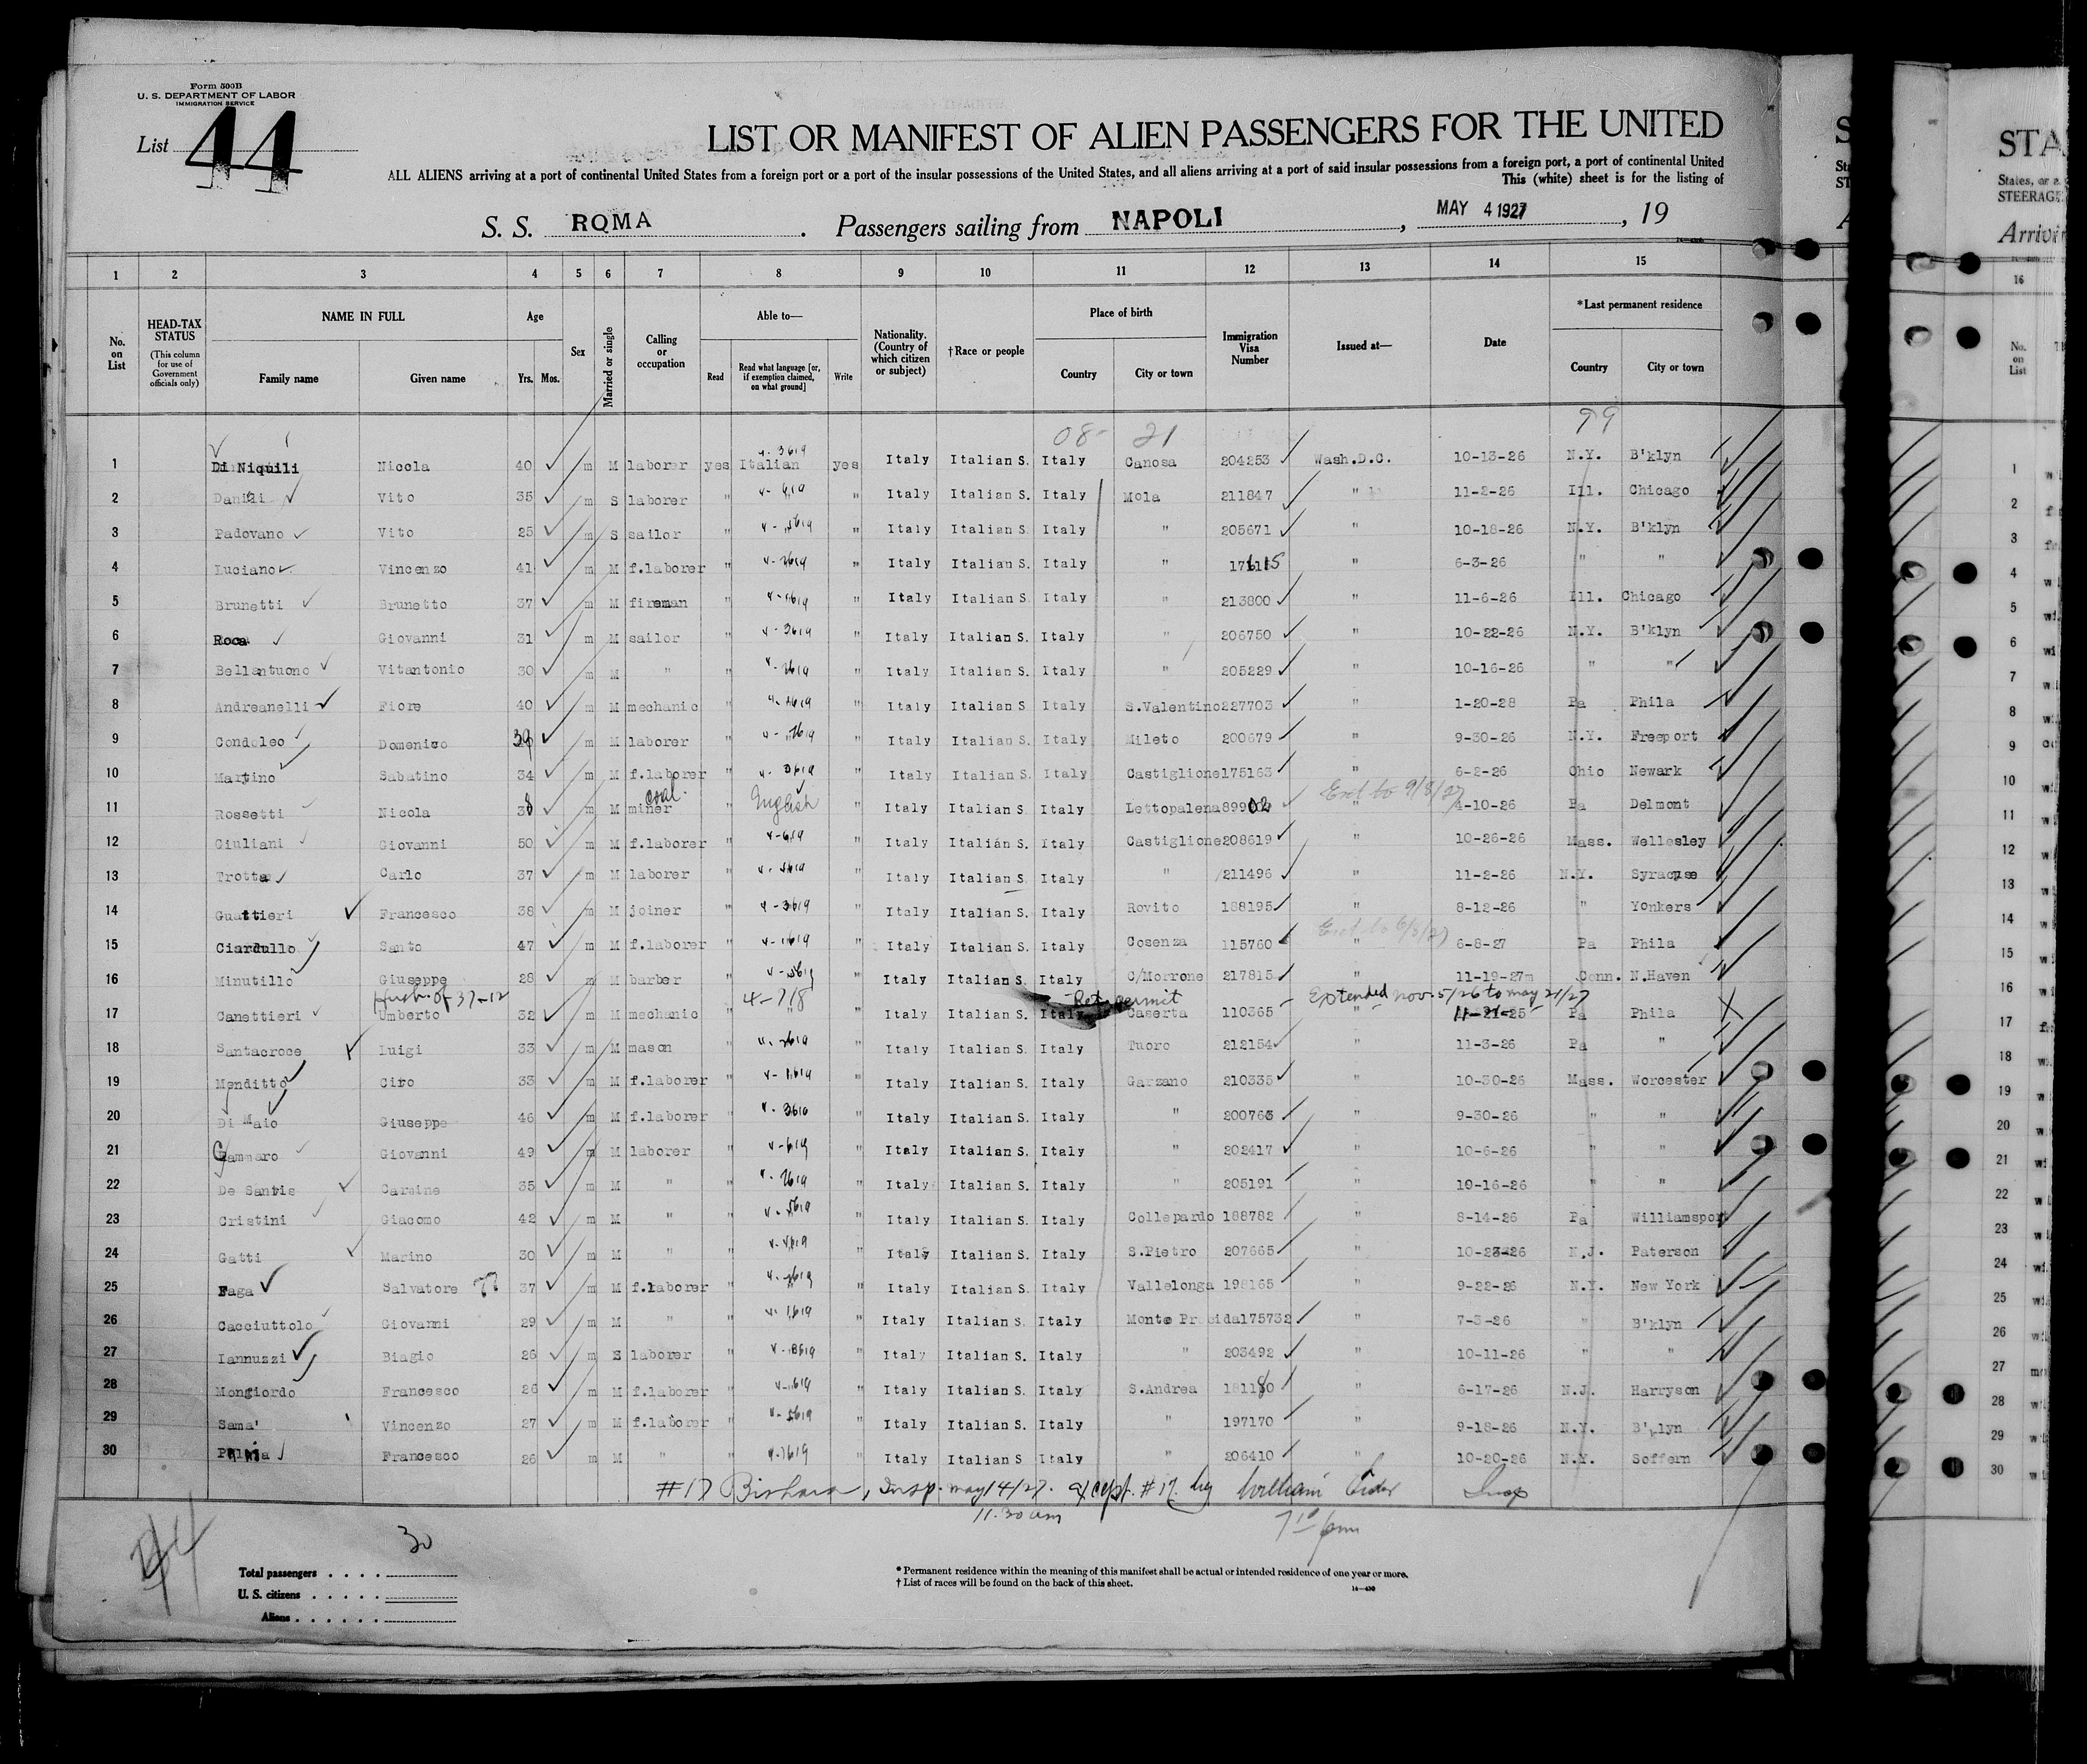 Form 500B
U. S. DEPARTMENT OF LABOR
IMMIGRATION SERVICE
List 44
LIST OR MANIFEST OF ALIEN PASSENGERS FOR THE UNITED
ALL ALIENS arriving at a port of continental United States from a foreign port or a port of the insular possessions of the United States, and all aliens arriving at a port of said insular possessions from a foreign port, a port of continental United
This (white) sheet is for the listing of
S. S. ROMA Passengers sailing from NAPOLI, MAY 4 1927, 19
1 2 3 4 5 6 7 8 9 10 11 12 13 14 15
No. on List
HEAD-TAX STATUS (This column for use of Government officials only)
NAME IN FULL Family name Given name
Age Yrs. Mos.
Sex
Married or single
Calling or occupation
Able to— Read Read what language [or, if exemption claimed, on what ground] Write
Nationality. (Country of which citizen or subject)
†Race or people
Place of birth Country City or town
Immigration Visa Number
Issued at—
Date
*Last permanent residence Country City or town
08- 21 99
1 Di Niquili Nicola 40 m M laborer yes Italian yes Italy Italian S. Italy Canosa 204253 Wash.D.C. 10-13-26 N.Y. B'klyn
2 Vito 35 m S laborer " " Italy Italian S. Italy Mola 211847 " 11-2-26 Ill. Chicago
3 Padovano Vito 25 m S sailor " " Italy Italian S. Italy " 205671 " 10-18-26 N.Y. B'klyn
4 Luciano Vincenzo 41 m M f.laborer " " Italy Italian S. Italy " " 6-3-26 " "
5 Brunetti Brunetto 37 m M fireman " " Italy Italian S. Italy " 213800 " 11-6-26 Ill. Chicago
6 Roca Giovanni 31 m M sailor " " Italy Italian S. Italy " 206750 " 10-22-26 N.Y. B'klyn
7 Bellantuono Vitantonio 30 m M " " " Italy Italian S. Italy " 205229 " 10-16-26 " "
8 Andreanelli Fiore 40 m M mechanic " " Italy Italian S Italy S.Valentino 227703 " 1-20-28 Pa Phila
9 Condoleo Domenico 39 m M laborer " " Italy Italian S. Italy Mileto 200679 " 9-30-26 N.Y. Freeport
10 Martino Sabatino 34 m M f.laborer " " Italy Italian S. Italy Castiglione 175163 " 6-2-26 Ohio Newark
11 Rossetti Nicola 38 m M coal miner " English " Italy Italian S. Italy Lettopalena 89902 " Ext to 9/8/27 4-10-26 Pa Delmont
12 Giuliani Giovanni 50 m M f.laborer " " Italy Italian S. Italy Castiglione 208619 " 10-26-26 Mass. Wellesley
13 Trotta Carlo 37 m M laborer " " Italy Italian S. Italy " 211496 " 11-2-26 N.Y. Syracuse
14 Guattieri Francesco 38 m M joiner " " Italy Italian S. Italy Rovito 188195 " 8-12-26 " Yonkers
15 Ciardullo Santo 47 m M f.laborer " " Italy Italian S. Italy Cosenza 115760 " Ext to 6/8/27 6-8-27 Pa Phila
16 Minutillo Giuseppe 28 m M barber " " Italy Italian S. Italy C/Morrone 217815 " 11-19-27 Conn. N.Haven
Husb. of 37-12 4-718 Ret permit Extended Nov. 5/26 to May 21/27
17 Canettieri Umberto 32 m M mechanic " " " Italy Italian S. Italy Caserta 110365 " 11-21-25 Pa Phila
18 Santacroce Luigi 33 m M mason " " Italy Italian S. Italy Tuoro 212154 " 11-3-26 Pa "
19 Menditto Ciro 33 m M f.laborer " " Italy Italian S. Italy Garzano 210335 " 10-30-26 Mass. Worcester
20 Di Maio Giuseppe 46 m M f.laborer " " Italy Italian S. Italy " 200766 " 9-30-26 " "
21 Gammaro Giovanni 49 m M laborer " " Italy Italian S. Italy " 202417 " 10-6-26 " "
22 De Santis Carmine 35 m M " " " Italy Italian S. Italy " 205191 " 10-16-26 " "
23 Cristini Giacomo 42 m M " " " Italy Italian S. Italy Collepardo 188782 " 8-14-26 Pa Williamsport
24 Gatti Marino 30 m M " " " Italy Italian S. Italy S.Pietro 207665 " 10-23-26 N.J. Paterson
25 Faga Salvatore 37 m M f.laborer " " Italy Italian S. Italy Vallelonga 198165 " 9-22-26 N.Y. New York
26 Cacciuttolo Giovanni 29 m M " " " Italy Italian S. Italy Monte Procida 175732 " 7-3-26 " B'klyn
27 Iannuzzi Biagio 26 m S laborer " " Italy Italian S. Italy " 203492 " 10-11-26 " "
28 Mongiordo Francesco 26 m M f.laborer " " Italy Italian S. Italy S.Andrea 181180 " 6-17-26 N.J. Harryson
29 Sama' Vincenzo 27 m M f.laborer " " Italy Italian S. Italy " 197170 " 9-18-26 N.Y. B'klyn
30 Francesco 26 m M " " " Italy Italian S Italy " 206410 " 10-20-26 N.Y. Soffern
#17 Bishara, Insp. May 14/27. except #17 by William Insp
11.30 am 7 10 pm
44
Total passengers . . . . 30
U. S. citizens . . . . .
Aliens . . . . . .
* Permanent residence within the meaning of this manifest shall be actual or intended residence of one year or more.
† List of races will be found on the back of this sheet.
STA
States, or a
STEERAGE
16
No. on List
1
2
3
4
5
6
7
8
9
10
11
12
13
14
15
16
17
18
19
20
21
22
23
24
25
26
27
28
29
30